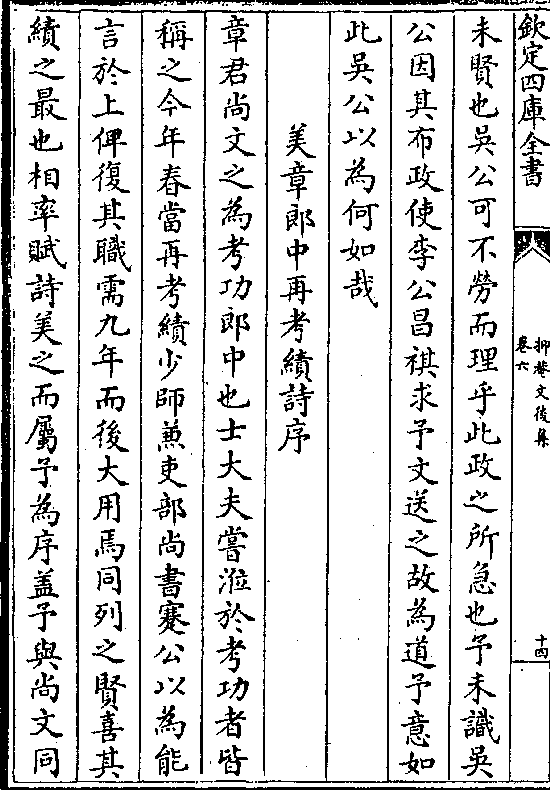 欽定四庫全書
抑菴文後集
卷六
十四
未賢也吳公可不勞而理乎此政之所急也予未識吳
公因其布政使李公昌祺求予文送之故為道予意如
此吳公以為何如哉
美章郎中再考績詩序
章君尚文之為考功郎中也士大夫嘗涖於考功者皆
稱之今年春當再考績少師兼吏部尚書蹇公以為能
言於上俾復其職需九年而後大用焉同列之賢喜其
績之最也相率賦詩美之而屬予為序蓋予與尚文同